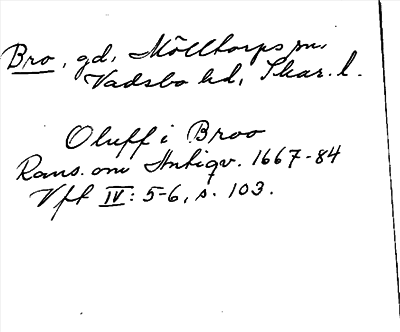 Bro, gd, Mölltorps sn,
Vadsbo hd, Skar. l.
Oluff i Broo
Rans. om Antiqv. 1667-84
Vft IV: 5-6, s. 103.